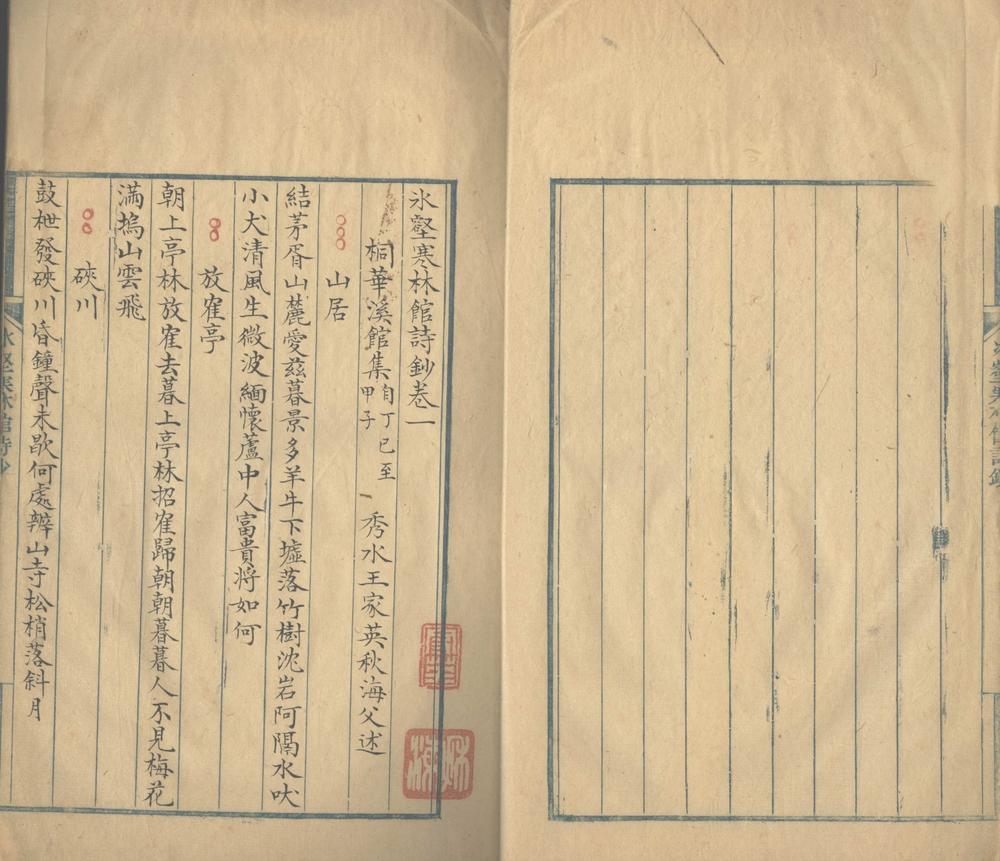 氷壑寒林館詩鈔卷一
桐華溪館集 自丁巳至甲子 秀水王家英秋海父述
山居
結茅胥山麓愛茲暮景多羊牛下墟落竹樹沈岩阿隔水吠
小犬清風生微波緬懷蘆中人富貴將如何
放寉亭
朝上亭林放寉去暮上亭林招寉歸朝朝暮暮人不見梅花
滿塢山雲飛
硤川
鼓枻發硤川昏鐘聲未歇何處辨山寺松梢落斜月